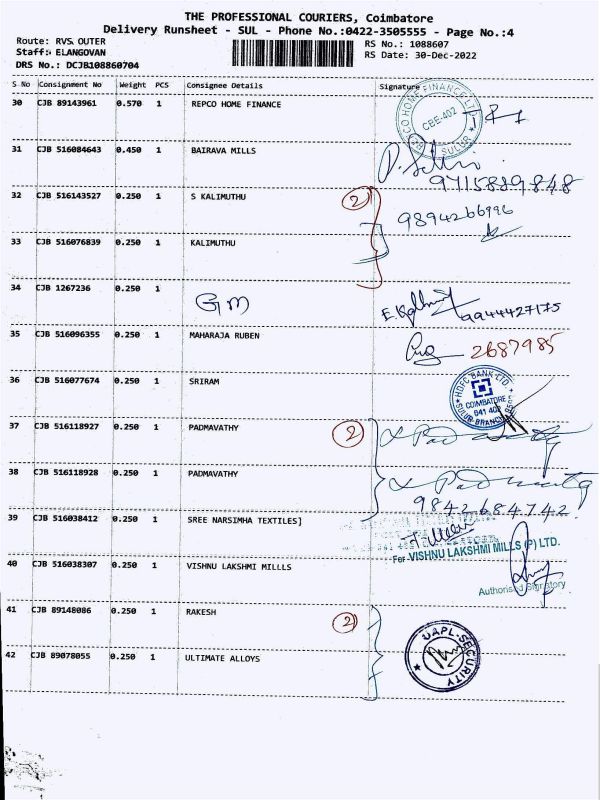 THE PROFESSIONAL COURIERS, Coimbatore
Delivery Runsheet - SUL - Phone No.:0422-3505555 - Page No.:4
Route: RVS OUTER RS No.: 1088607
Staff: ELANGOVAN RS Date: 30-Dec-2022
DRS No.: DCJB108860704
S No Consignment No Weight PCS Consignee Details Signature
30 CJB 89143961 0.570 1 REPCO HOME FINANCE
CBE-402
SULUR
31 CJB 516084643 0.450 1 BAIRAVA MILLS
9715889848
32 CJB 516143527 0.250 1 S KALIMUTHU 2
9894266996
33 CJB 516076839 0.250 1 KALIMUTHU
34 CJB 1267236 0.250 1
GM 9944427175
35 CJB 516096355 0.250 1 MAHARAJA RUBEN
2687985
36 CJB 516077674 0.250 1 SRIRAM
HDFC BANK LTD.
COIMBATORE
641 402
SULUR BRANCH
37 CJB 516118927 0.250 1 PADMAVATHY 2
38 CJB 516118928 0.250 1 PADMAVATHY
9842684742
39 CJB 516038412 0.250 1 SREE NARSIMHA TEXTILES]
For VISHNU LAKSHMI MILLS (P) LTD.
40 CJB 516038307 0.250 1 VISHNU LAKSHMI MILLLS
Authorised Signatory
41 CJB 89148086 0.250 1 RAKESH 2
UAPL-SECURITY
42 CJB 89078055 0.250 1 ULTIMATE ALLOYS